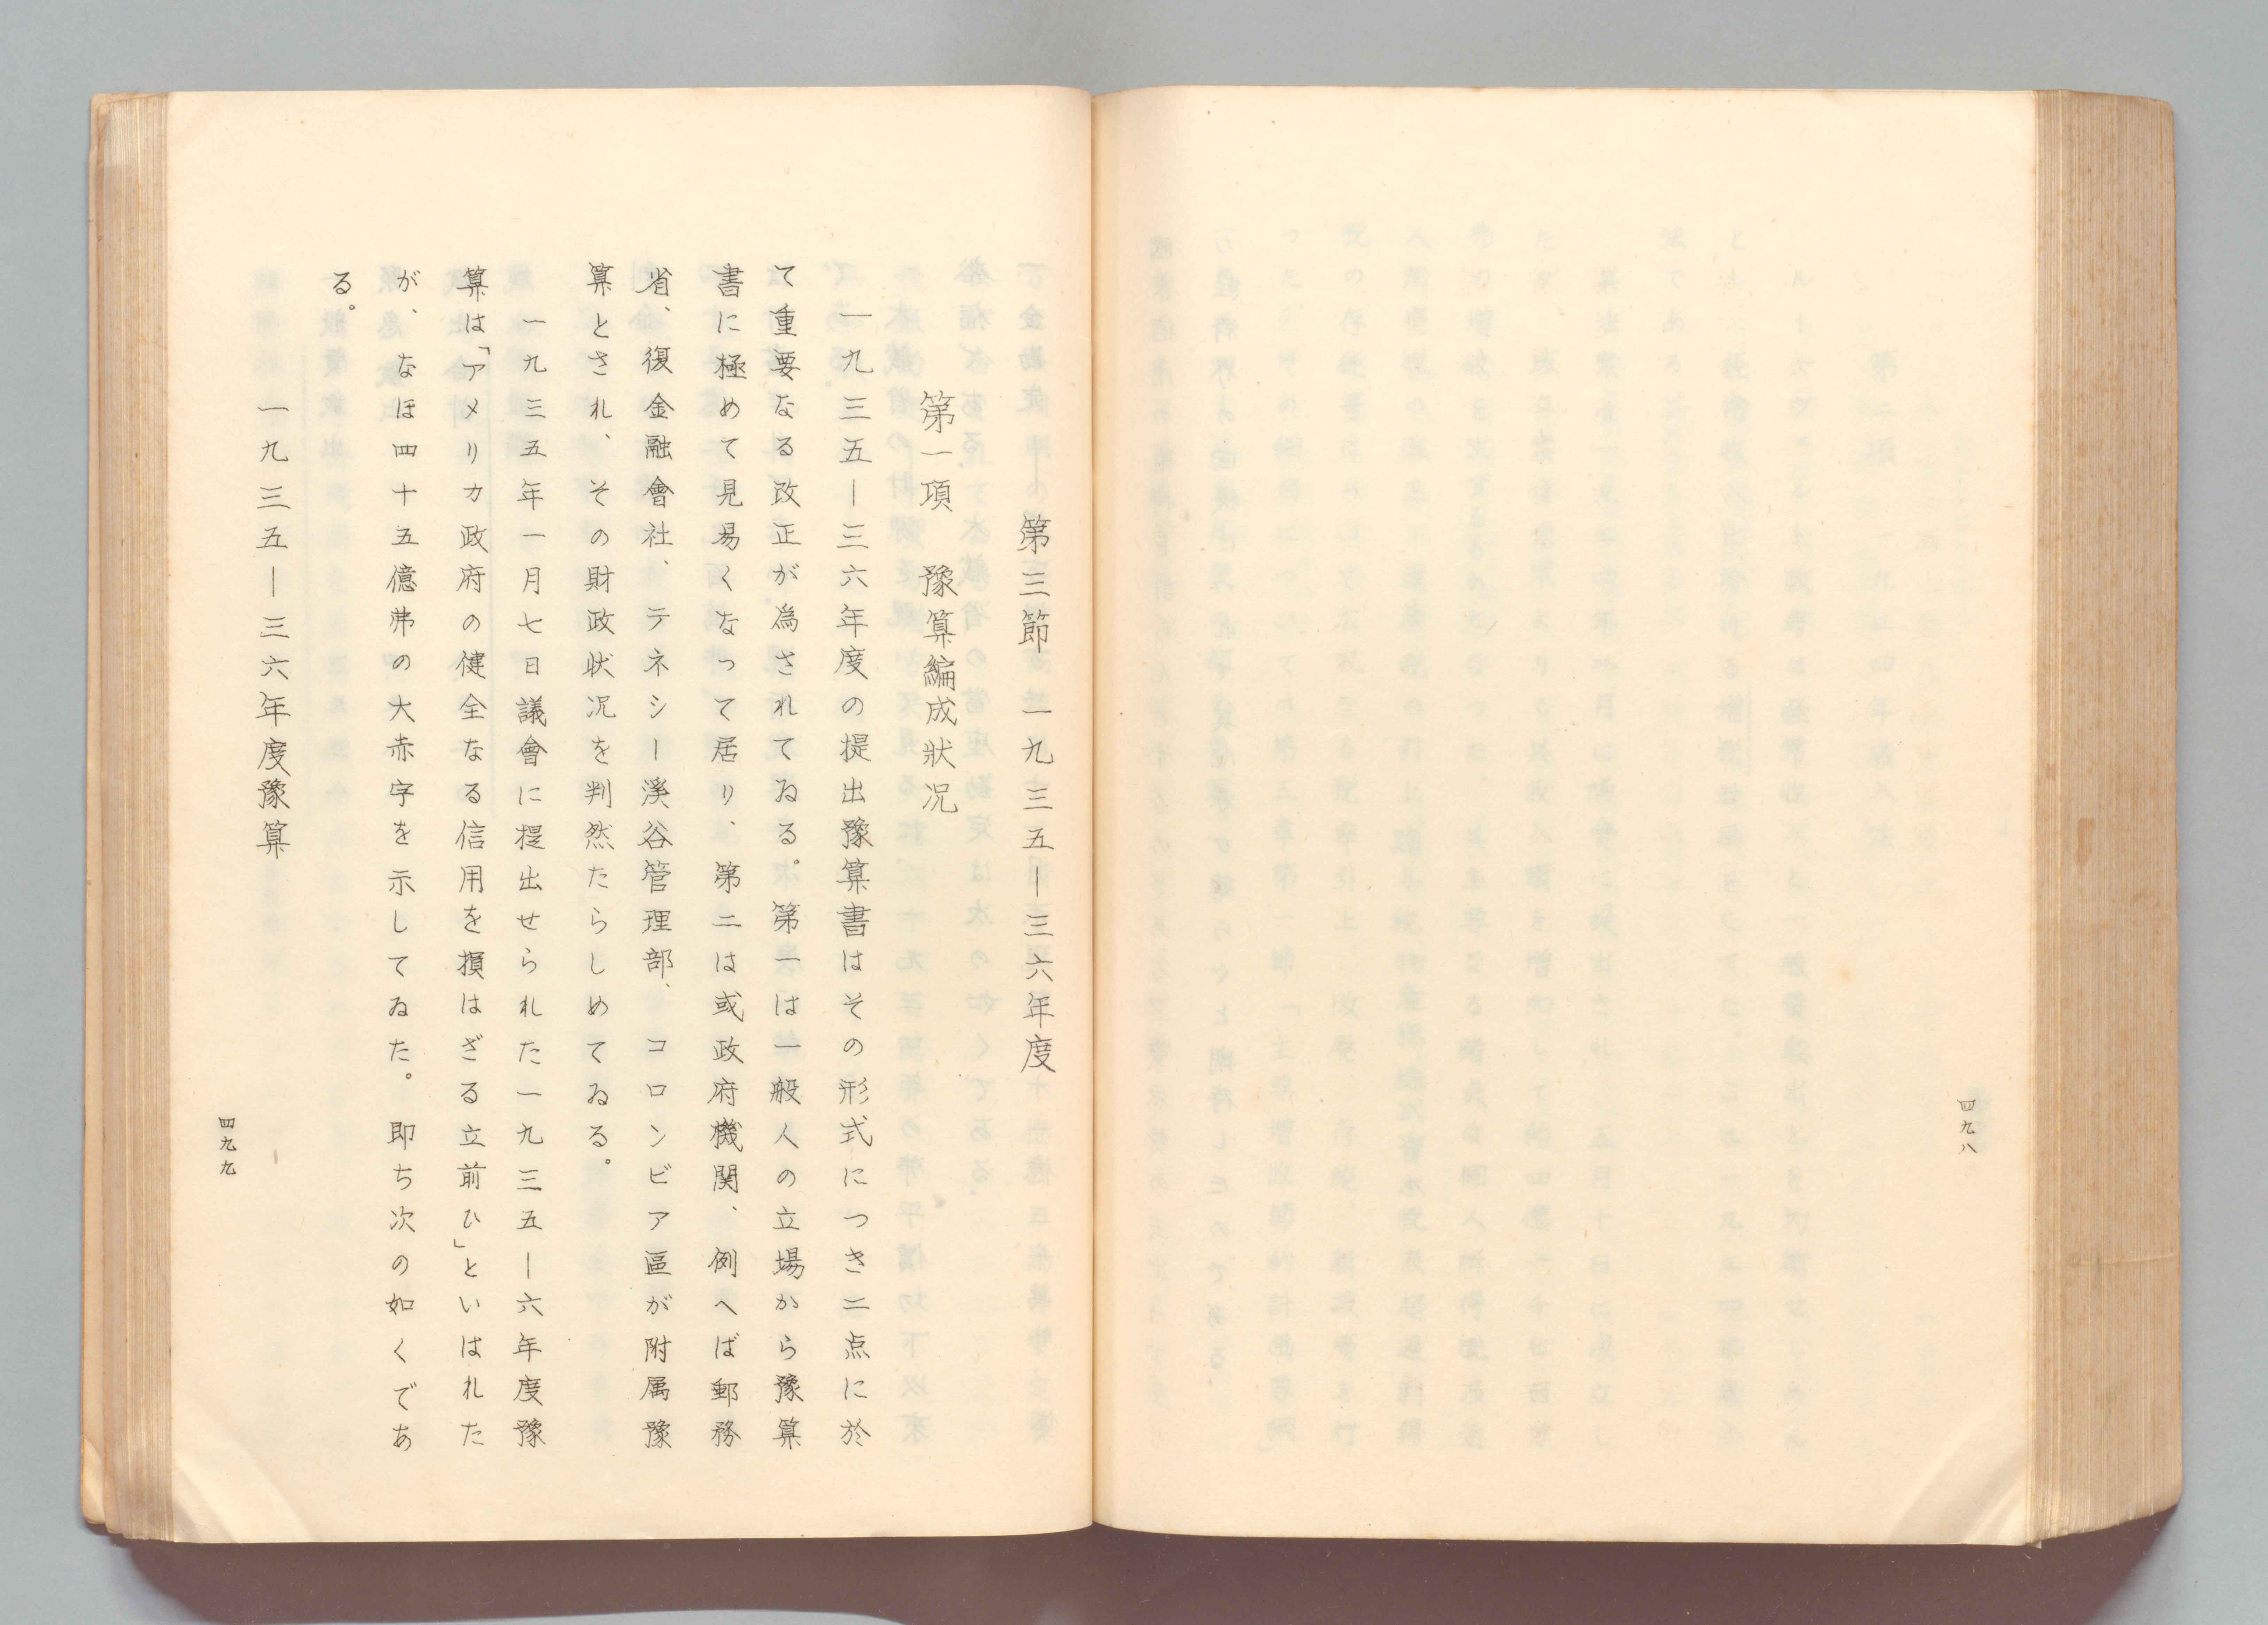 四九八
第三節 一九三五―三六年度
第一項 豫算編成狀況
一九三五―三六年度の提出豫算書はその形式につき二点に於
て重要なる改正が為されてゐる。第一は一般人の立場から豫算
書に極めて見易くなって居り、第二は或政府機関、例へば郵務
省、復金融會社、テネシー溪谷管理部、コロンビア區が附属豫
算とされ、その財政状况を判然たらしめてゐる。
一九三五年一月七日議會に提出せられた一九三五―六年度豫
算は「アメリカ政府の健全なる信用を損はざる立前ひ」といはれた
が、なほ四十五億弗の大赤字を示してゐた。即ち次の如くであ
る。
一九三五―三六年度豫算
四九九